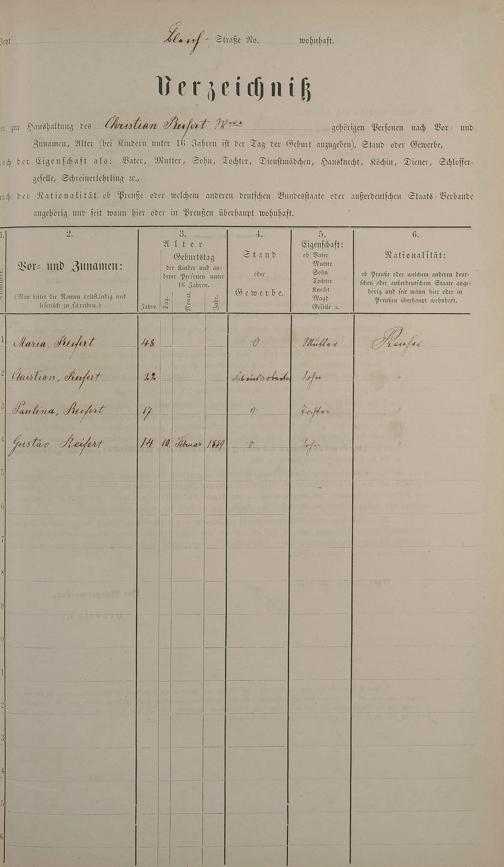 jetzt Straße No. wohnhaft.
Verzeichniß
der zur Haushaltung des Christian Reifert Wwe gehörigen Personen nach Vor- und
Zunamen, Alter (bei Kindern unter 16 Jahren ist der Tag der Geburt anzugeben), Stand oder Gewerbe,
nach der Eigenschaft als: Vater, Mutter, Sohn, Tochter, Dienstmädchen, Hausknecht, Köchin, Diener, Schlosser-
geselle, Schreinerlehrling ꝛc.,
nach der Nationalität ob Preuße oder welchem anderen deutschen Bundesstaate oder außerdeutschen Staats-Verbande
angehörig und seit wann hier oder in Preußen überhaupt wohnhaft.
1. 2. 3. 4. 5. 6.
Nummer.
Vor- und Zunamen:
(Man bittet die Namen vollständig und
leserlich zu schreiben.)
Alter
Jahre.
Geburtstag
der Kinder und an-
derer Personen unter
16 Jahren.
Tag. Monat. Jahr.
Stand
oder
Gewerbe.
Eigenschaft:
ob Vater
Mutter
Sohn
Tochter
Knecht
Magd
Geselle ꝛc.
Nationalität:
ob Preuße oder welchem anderen deut-
schen oder außerdeutschen Staate ange-
hörig und seit wann hier oder in
Preußen überhaupt wohnhaft.
1 Maria Reifert 48 0 Mutter Preuße
2 Christian, Reifert 22 Sohn "
3 Paulina, Reifert 17 0 Tochter "
4 Gustav Reifert 14 10 Februar 1859 0 Sohn "
5
6
7
8
9
0
1
2
3
4
5
6